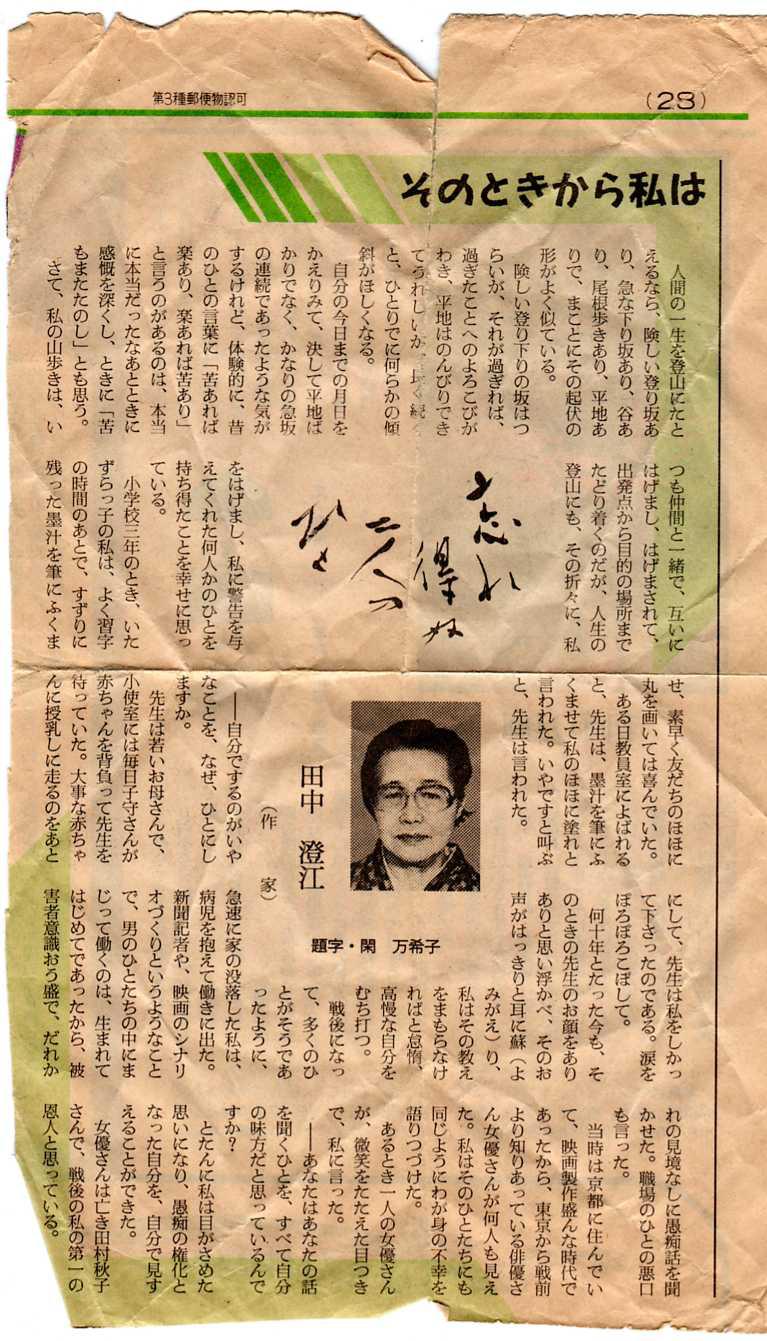 第3種郵便物認可
(28)
そのときから私は
人間の一生を登山にたと
えるなら、険しい登り坂あ
り、急な下り坂あり、谷あ
り、尾根歩きあり、平地あ
りで、まことにその起伏の
形がよく似ている。
険しい登り下りの坂はつ
らいが、それが過ぎれば、
過ぎたことへのよろこびが
わき、平地はのんびりでき
てうれしいが、長く続く
と、ひとりでに何らかの傾
斜がほしくなる。
自分の今日までの月日を
かえりみて、決して平地ば
かりでなく、かなりの急坂
の連続であったような気が
するけれど、体験的に、昔
のひとの言葉に「苦あれば
楽あり、楽あれば苦あり」
と言うのがあるのは、本当
に本当だったなあとときに
感慨を深くし、ときに「苦
もまたたのし」とも思う。
さて、私の山歩きは、い
つも仲間と一緒で、互いに
はげまし、はげまされて、
出発点から目的の場所まで
たどり着くのだが、人生の
登山にも、その折々に、私
忘れ
得ぬ
二人の
ひと
をはげまし、私に警告を与
えてくれた何人かのひとを
持ち得たことを幸せに思っ
ている。
小学校三年のとき、いた
ずらっ子の私は、よく習字
の時間のあとで、すずりに
残った墨汁を筆にふくま
せ、素早く友だちのほほに
丸を画いては喜んでいた。
ある日教員室によばれる
と、先生は、墨汁を筆にふ
くませて私のほほに塗れと
言われた。いやですと叫ぶ
と、先生は言われた。
田中 澄江
(作 家)
──自分でするのがいや
なことを、なぜ、ひとにし
ますか。
先生は若いお母さんで、
小使室には毎日子守さんが
赤ちゃんを背負って先生を
待っていた。大事な赤ちゃ
んに授乳しに走るのをあと
にして、先生は私をしかっ
て下さったのである。涙を
ぽろぽろこぼして。
何十年とたった今も、そ
のときの先生のお顔をあり
ありと思い浮かべ、そのお
声がはっきりと耳に蘇(よ
みがえ)り、
私はその教え
をまもらなけ
ればと怠惰、
高慢な自分を
むち打つ。
戦後になっ
て、多くのひ
とがそうであ
ったように、
題字・閑 万希子
急速に家の没落した私は、
病児を抱えて働きに出た。
新聞記者や、映画のシナリ
オづくりというようなこと
で、男のひとたちの中にま
じって働くのは、生まれて
はじめてであったから、被
害者意識おう盛で、だれか
れの見境なしに愚痴話を聞
かせた。職場のひとの悪口
も言った。
当時は京都に住んでい
て、映画製作盛んな時代で
あったから、東京から戦前
より知りあっている俳優さ
ん女優さんが何人も見え
た。私はそのひとたちにも
同じようにわが身の不幸を
語りつづけた。
あるとき一人の女優さん
が、微笑をたたえた目つき
で、私に言った。
──あなたはあなたの話
を聞くひとを、すべて自分
の味方だと思っているんで
すか？
とたんに私は目がさめた
思いになり、愚痴の権化と
なった自分を、自分で見す
えることができた。
女優さんは亡き田村秋子
さんで、戦後の私の第一の
恩人と思っている。